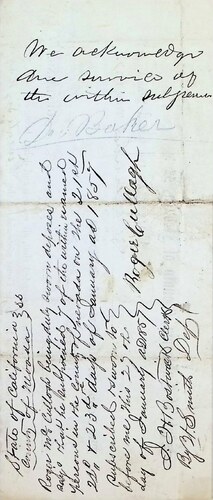 We acknowledge
due service of
the within subpoena
Baker
State of California } ss
County of Nevada }
Roger McCullogh being duly sworn deposes and
says that he subpoenaed 7 of the within named
persons in the County of Nevada on the 21st
22d & 23d days of January AD 1857
Roger
Subscribed & sworn to
before me this 27th
day of January AD 1857
Clerk
By Smith Dep